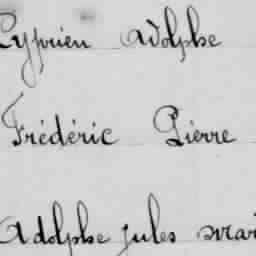 Cyprien Adolphe
Frédéric Pierre
Adolphe Jules